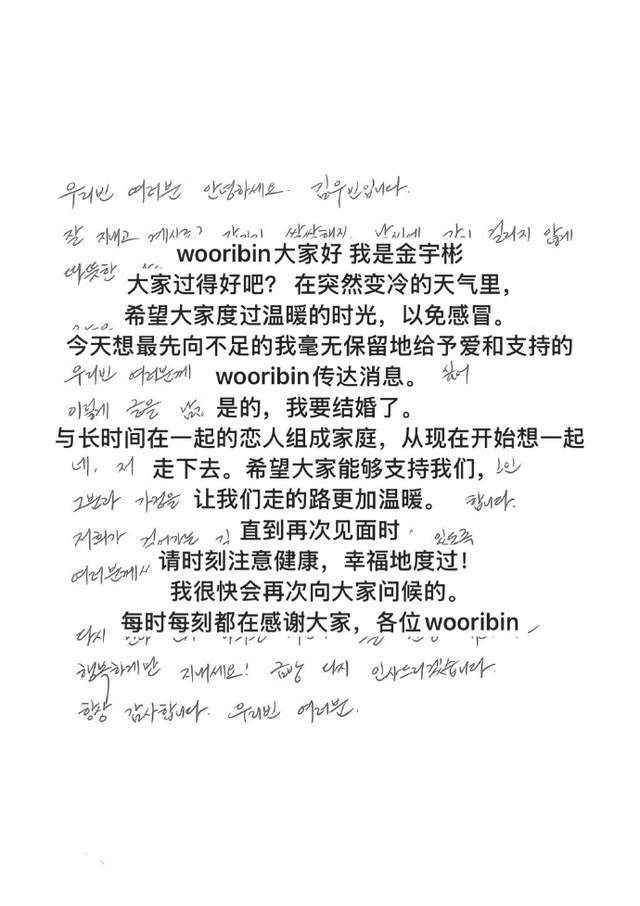 우리빈 여러분 안녕하세요. 김우빈입니다.
잘 지내고 계시죠? 갑자기 쌀쌀해진 날씨에 감기 걸리지 않게
wooribin大家好 我是金宇彬
따뜻한
大家过得好吧? 在突然变冷的天气里，
希望大家度过温暖的时光，以免感冒。
今天想最先向不足的我毫无保留地给予爱和支持的
우리빈 여러분께 wooribin传达消息。 싶어
이렇게 글을 是的，我要结婚了。
与长时间在一起的恋人组成家庭，从现在开始想一起
네, 저 走下去。希望大家能够支持我们，
그분과 가정을 让我们走的路更加温暖。 합니다.
저희가 걸어가는 直到再次见面时 있도록
여러분께서 请时刻注意健康，幸福地度过！
我很快会再次向大家问候的。
每时每刻都在感谢大家，各位wooribin
다시
행복하게만 지내세요! 금방 다시 인사드리겠습니다.
항상 감사합니다. 우리빈 여러분.